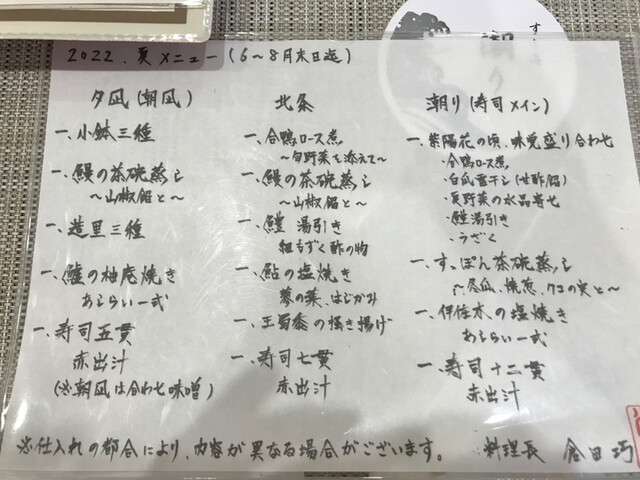 2022.夏メニュー(6〜8月末日迄)
夕凪(朝凪)
一、小鉢三種
一、鰻の茶碗蒸し
〜山椒餡と〜
一、造里三種
一、鱸の柚庵焼き
あしらい一式
一、寿司五貫
赤出汁
(※朝凪は合わせ味噌)
北条
一、合鴨ロース煮
〜旬野菜を添えて〜
一、鰻の茶碗蒸し
〜山椒餡と〜
一、鱧 湯引き
糸もずく酢の物
一、鮎の塩焼き
蓼の葉、はじかみ
一、玉蜀黍の掻き揚げ
一、寿司七貫
赤出汁
潮り(寿司メイン)
一、紫陽花の頃、味覚盛り合わせ
・合鴨ロース煮
・白瓜雷干し(甘酢餡)
・夏野菜の水晶寄せ
・鱧湯引き
・うざく
一、すっぽん茶碗蒸し
〜冬瓜、焼葱、クコの実と〜
一、伊佐木の塩焼き
あしらい一式
一、寿司十二貫
赤出汁
※仕入れの都合により、内容が異なる場合がございます。
料理長 倉田巧